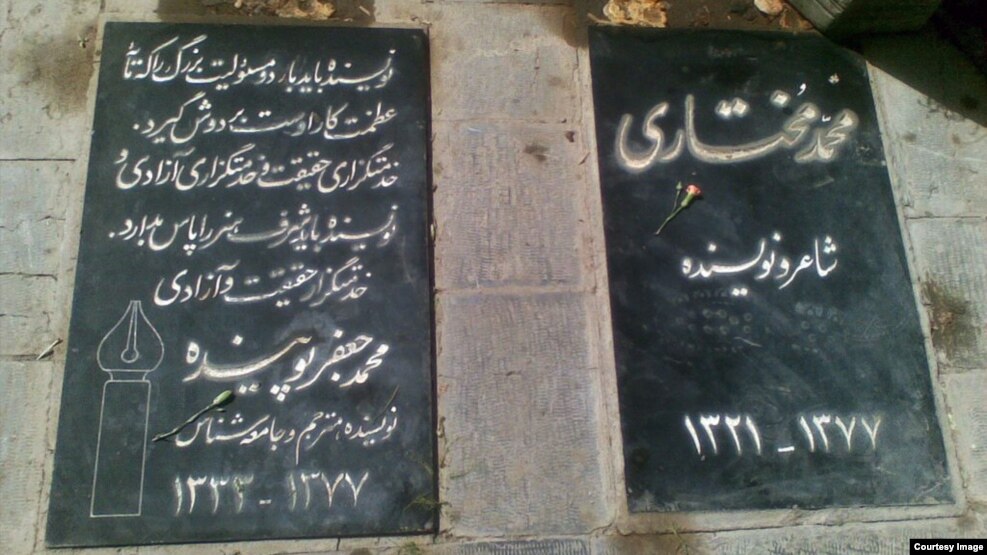 محمّد مُختاری
شاعر و نویسنده
۱۳۲۱ - ۱۳۷۷
نویسنده باید بار دو مسئولیت بزرگ را که مایهٔ
عظمت کار اوست بر دوش گیرد.
خدمتگزاری حقیقت و خدمتگزاری آزادی و
نویسنده باید شرف هنر را پاس بدارد.
خدمتگزار حقیقت و آزادی
محمد جعفر پوینده
نویسنده، مترجم و جامعه شناس
۱۳۳۳ - ۱۳۷۷
Courtesy Image